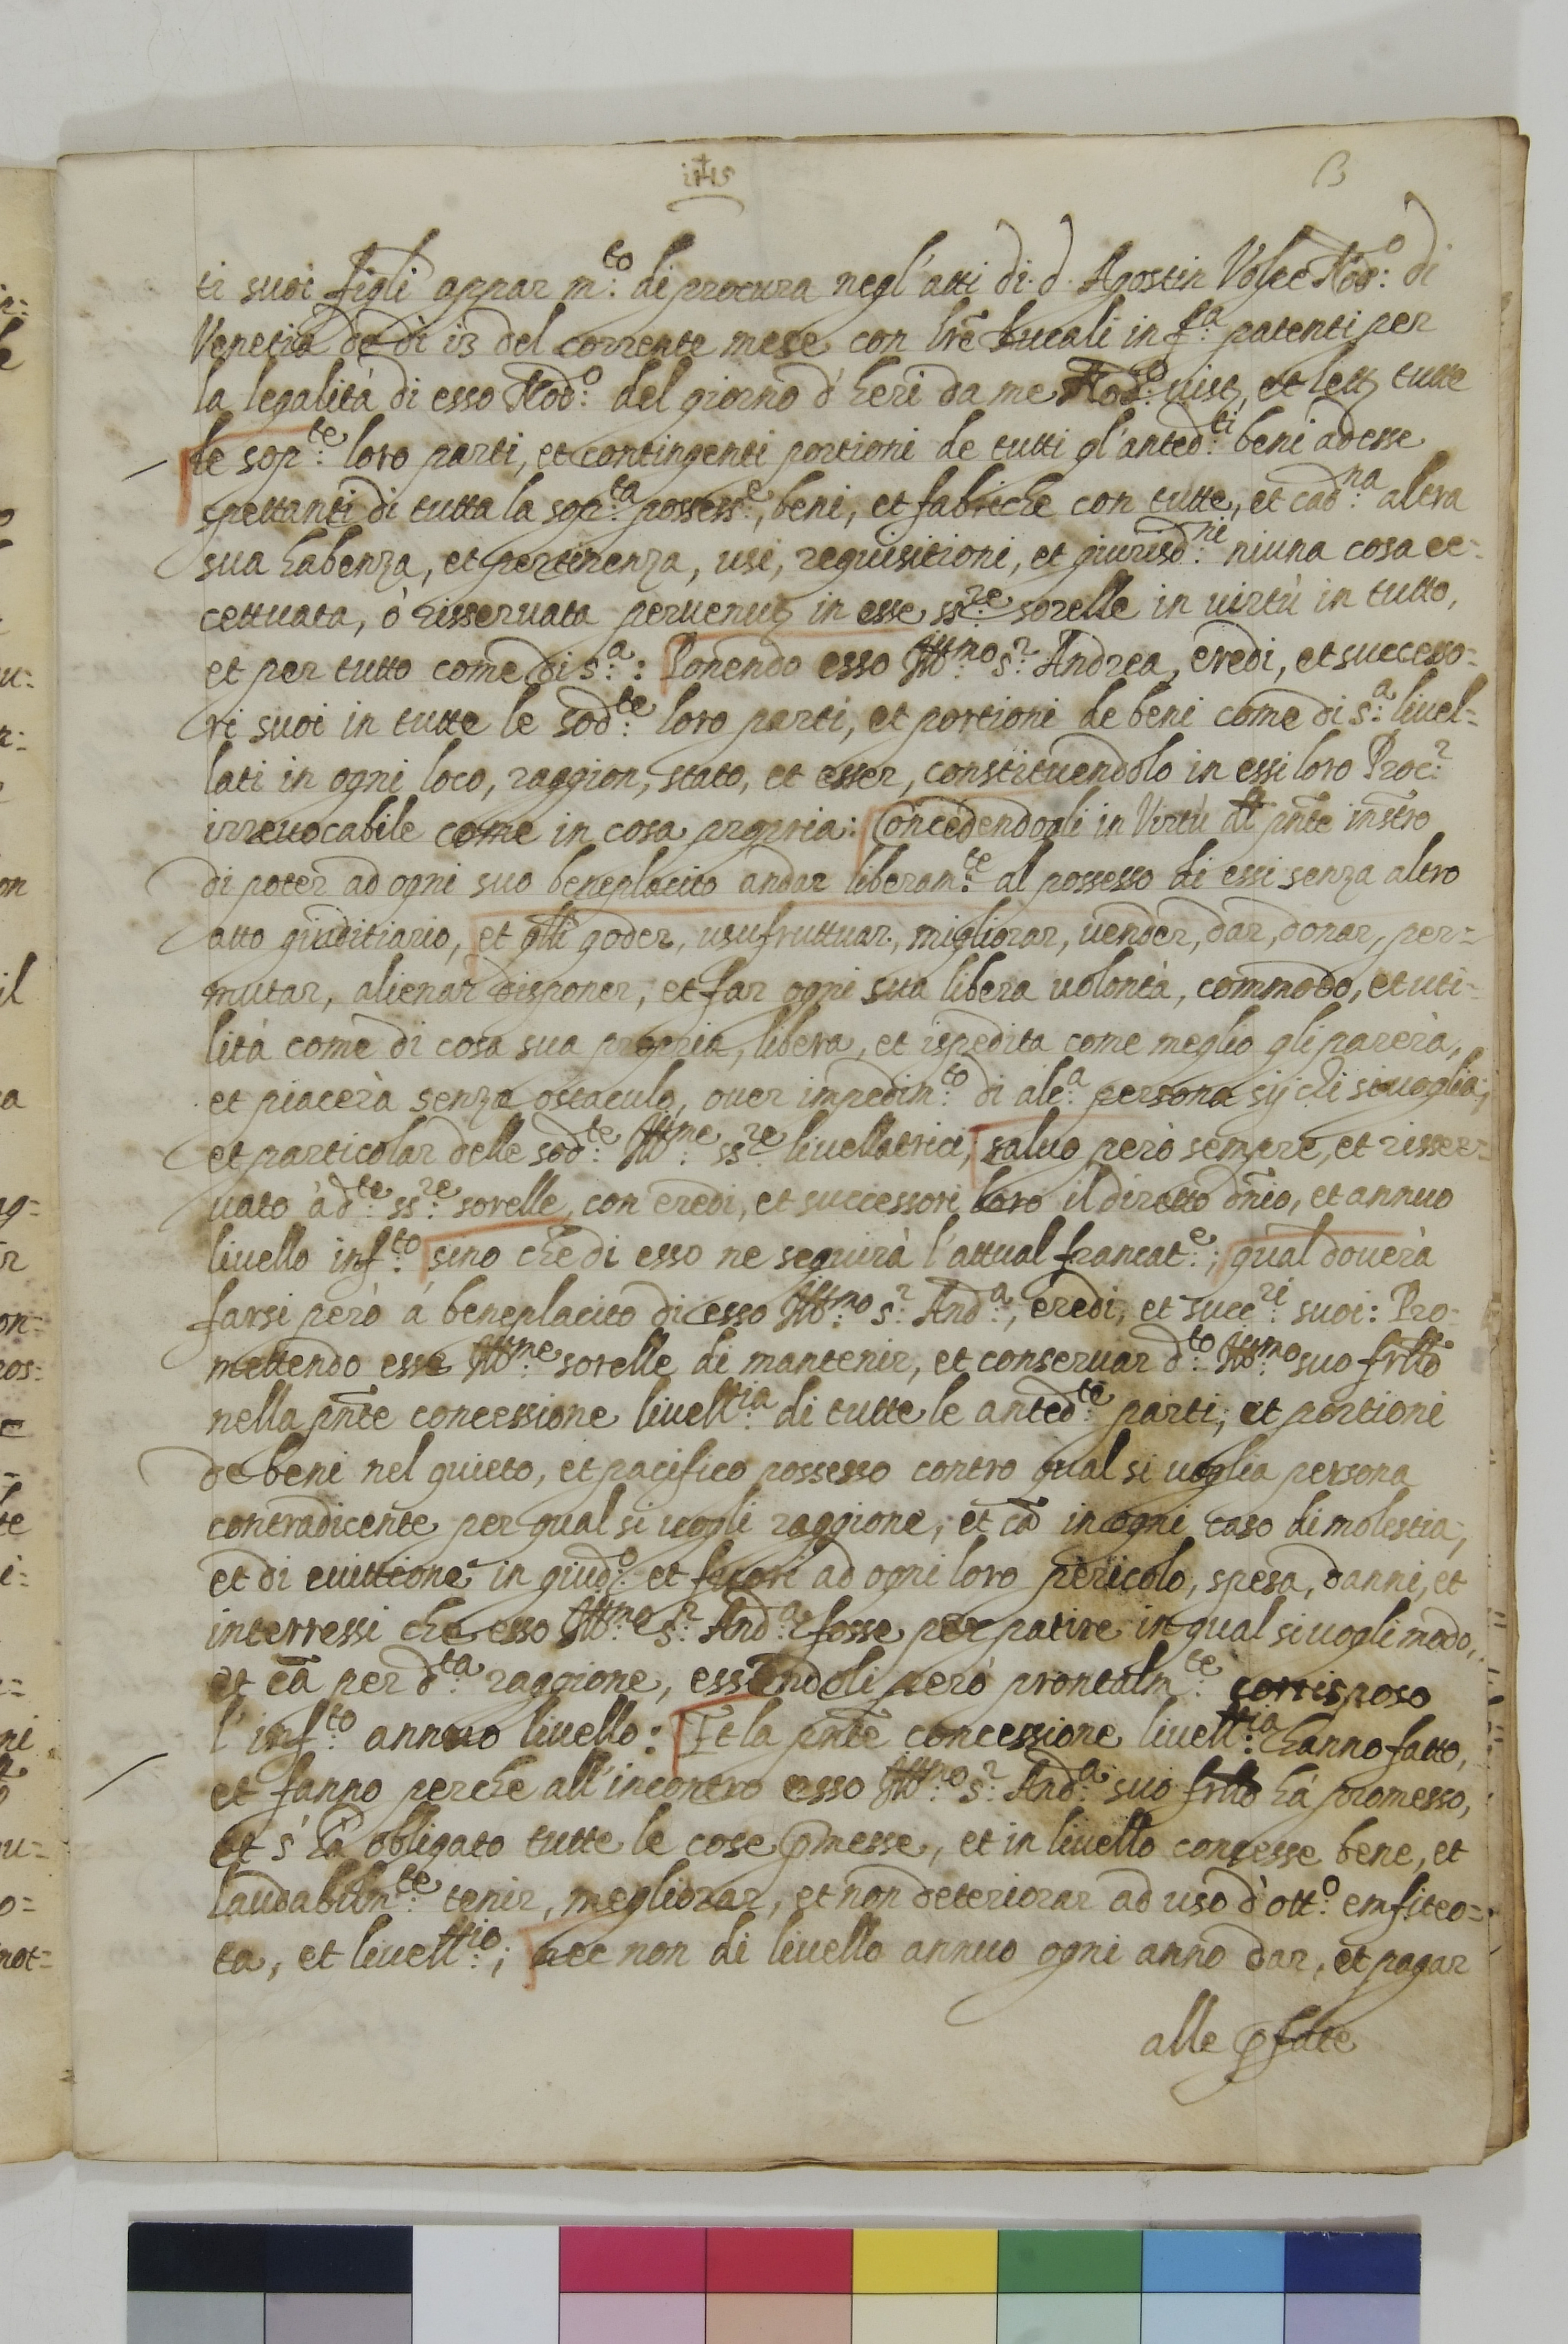 ihs
ti suoi figli appar m.to di procura negl'atti di d. Agostin Nod.o di
Venetia de dì 13 del corrente mese con lrē Ducali in f.a patenti per
la legalità di esso Nod.o del giorno d'heri da me Nod.o uist, et lett tutte
le sop.te loro parti, et contingenti portioni de tutti gl'anted.ti beni ad esse
spettanti di tutta la sop.ta possess.e, beni, et fabriche con tutte, et cad.na altra
sua habenza, et pertinenza, usi, requisitioni, et giurisd.ni niuna cosa ec=
cettuata, ò risseruata peruenut in esse ss.re sorelle in uirtù in tutto,
et per tutto come di s.a: Ponendo esso Ill.mo s.r Andrea, eredi, et successo=
ri suoi in tutte le sod.te loro parti, et portioni de beni come di s.a liuel=
lati in ogni loco, raggion, stato, et esser, constituendolo in essi loro Proc.r
irreuocabile come in cosa propria: Concedendogli in Virtù del pñte instro
di poter ad ogni suo beneplacito andar liberam.te al possesso di essi senza altro
atto giuditiario, et qlli goder, usufruttuar, migliorar, uender, dar, donar, per=
mutar, alienar disponer, et far ogni sua libera uolontà, commodo, et uti=
lità come di cosa sua propria, libera, et ispedita come meglio gli parerà,
et piacerà senza ostaculo, ouer impedim.to di alc.a persona sij chi si uoglia,
et particolar delle sod.te Ill.me ss.re liuellatrici, saluo però sempre, et risser=
uato à d.te ss.re sorelle, con eredi, et successori loro il diretto dñio, et annuo
liuello inf.to sino che di esso ne seguirà l'attual francat.e; qual douerà
farsi però à beneplacito di esso Ill.mo s.r And.a, eredi, et succ.ri suoi: Pro=
mettendo esse Ill.me sorelle di mantenir, et conseruar d.to Ill.mo suo frllo
nella pñte concessione liuell.ia di tutte le anted.te parti, et portioni
de beni nel quieto, et pacifico possesso contro qual si uoglia persona
contradicente per qual si uogli raggione, et cā in ogni caso di molestia,
et di euittione in giud.o et fuori ad ogni loro pericolo, spesa, danni, et
interressi che esso Ill.mo s.r And.a fosse per patire in qual si uogli modo,
et cā per d.ta raggione, essendoli però prontalm.te corrisposo
l'inf.to annuo liuello: Et la pñte concessione liuell.ia hanno fatto,
et fanno perche all'incontro esso Ill.mo s.r And.a suo frllo hà promesso,
et s'hà obligato tutte le cose pmesse, et in liuello concesse bene, et
laudabilm.te tenir, megliorar, et non deteriorar ad uso d'ott.o emfiteo=
ta, et liuell.io; nec non di liuello annuo ogni anno dar, et pagar
alle pfate